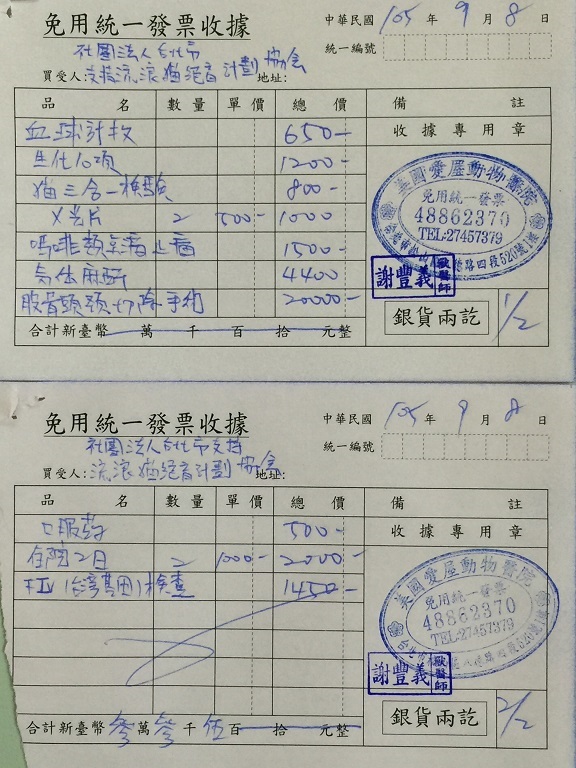 免用統一發票收據
中華民國 105 年 9 月 8 日
統一編號
社團法人台北市
買受人:支持流浪貓絕育計劃協會 地址:
品名 數量 單價 總價 備註
收據專用章
血球計數 650-
生化10項 1200-
貓三合一檢驗 800-
X光片 2 500- 1000
嗎啡類点滴止痛 1500-
氣体麻醉 4400
股骨頭頸切除手術 20000-
英國愛屋動物醫院
免用統一發票
48862370
TEL:27457379
路四段520號1樓
謝豐義 獸醫師
合計新臺幣 萬 千 百 拾 元整
銀貨兩訖 1/2
免用統一發票收據
中華民國 105 年 9 月 8 日
統一編號
社團法人台北市支持
買受人:流浪貓絕育計劃協會 地址:
品名 數量 單價 總價 備註
收據專用章
口服葯 500-
住院2日 2 1000- 2000-
(台灣基因)檢查 1450-
英國愛屋動物醫院
免用統一發票
48862370
TEL:27457379
八德路四段520號1樓
謝豐義 獸醫師
合計新臺幣 參萬參千伍百 拾 元整
銀貨兩訖 2/2